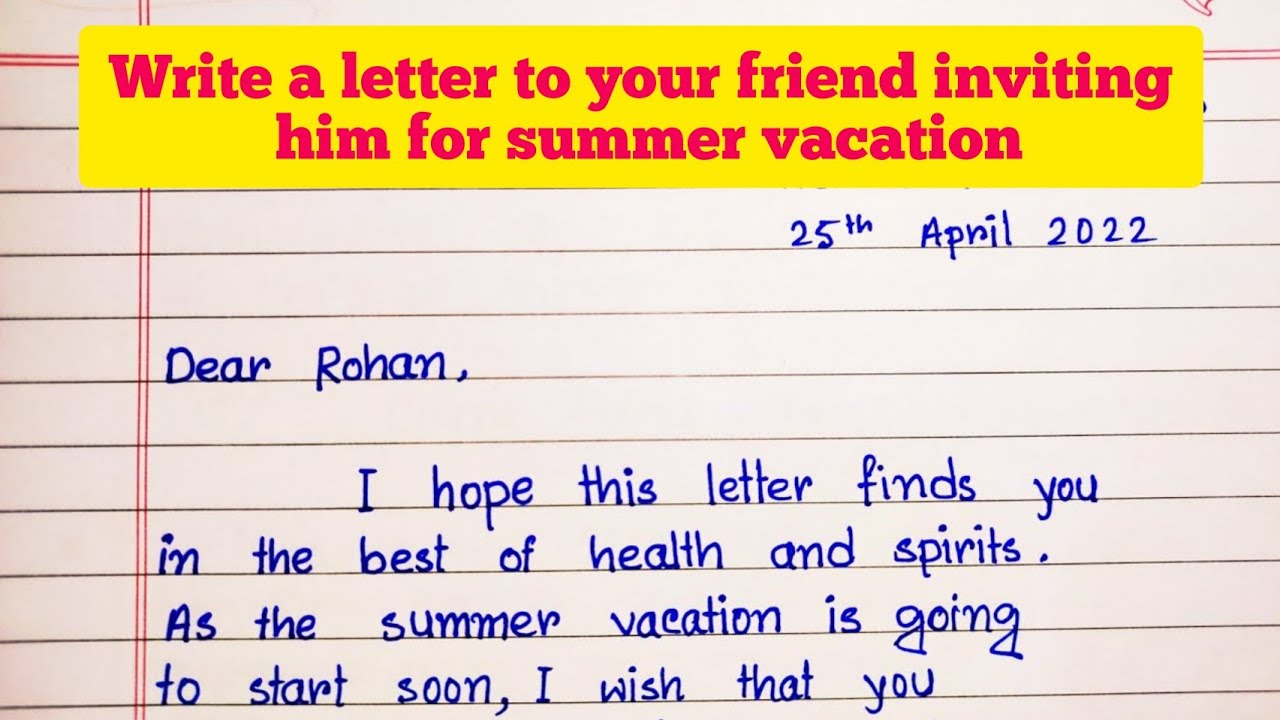 Write a letter to your friend inviting
him for summer vacation
25th April 2022
Dear Rohan,
I hope this letter finds you
in the best of health and spirits.
As the summer vacation is going
to start soon, I wish that you